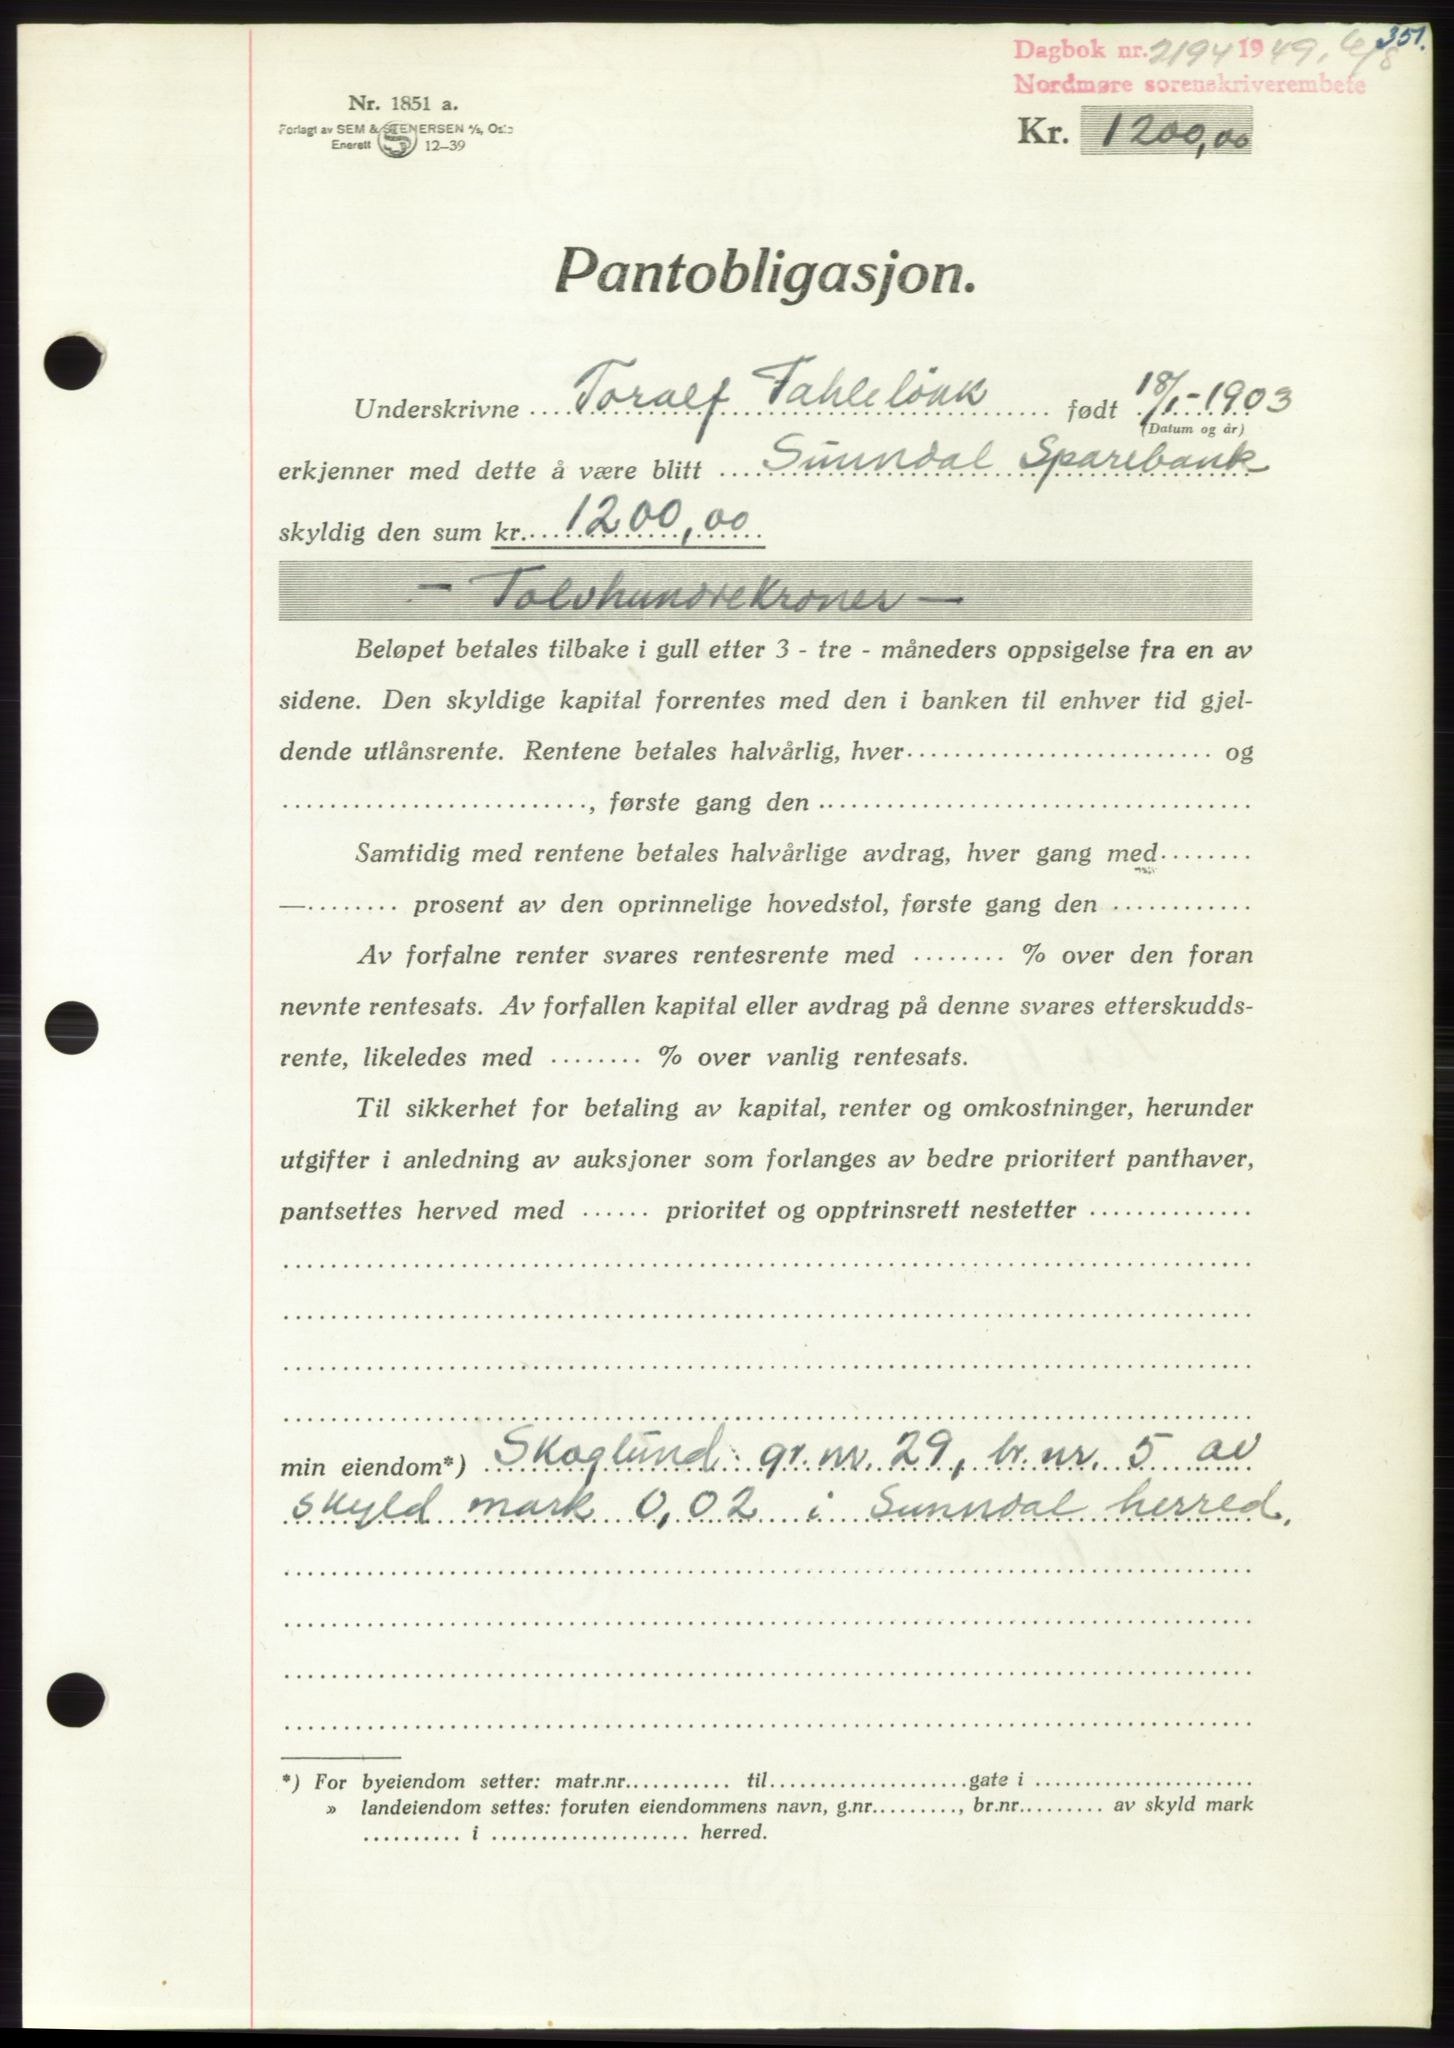 351.
Dagbok nr. 2194 1949, 6/8
Nordmøre sorenskriverembete
Nr. 1851 a.
Forlagt av SEM & STENERSEN A/S, Oslo
Enerett 12-39
Kr. 1200,00
Pantobligasjon.
Underskrivne Toralf født 18/1-1903
(Datum og år)
erkjenner med dette å være blitt Sunndal Sparebank
skyldig den sum kr. 1200,00
- Tolvhundrekroner -
Beløpet betales tilbake i gull etter 3 - tre - måneders oppsigelse fra en av
sidene. Den skyldige kapital forrentes med den i banken til enhver tid gjel-
dende utlånsrente. Rentene betales halvårlig, hver og
, første gang den
Samtidig med rentene betales halvårlige avdrag, hver gang med
— prosent av den oprinnelige hovedstol, første gang den
Av forfalne renter svares rentesrente med % over den foran
nevnte rentesats. Av forfallen kapital eller avdrag på denne svares etterskudds-
rente, likeledes med % over vanlig rentesats.
Til sikkerhet for betaling av kapital, renter og omkostninger, herunder
utgifter i anledning av auksjoner som forlanges av bedre prioritert panthaver,
pantsettes herved med prioritet og opptrinsrett nestetter
min eiendom*) Skoglund gr. nr. 29, br. nr. 5 av
skyld mark 0,02 i Sunndal herred.
*) For byeiendom setter: matr.nr. til gate i
» landeiendom settes: foruten eiendommens navn, g.nr. , br.nr. av skyld mark
i herred.